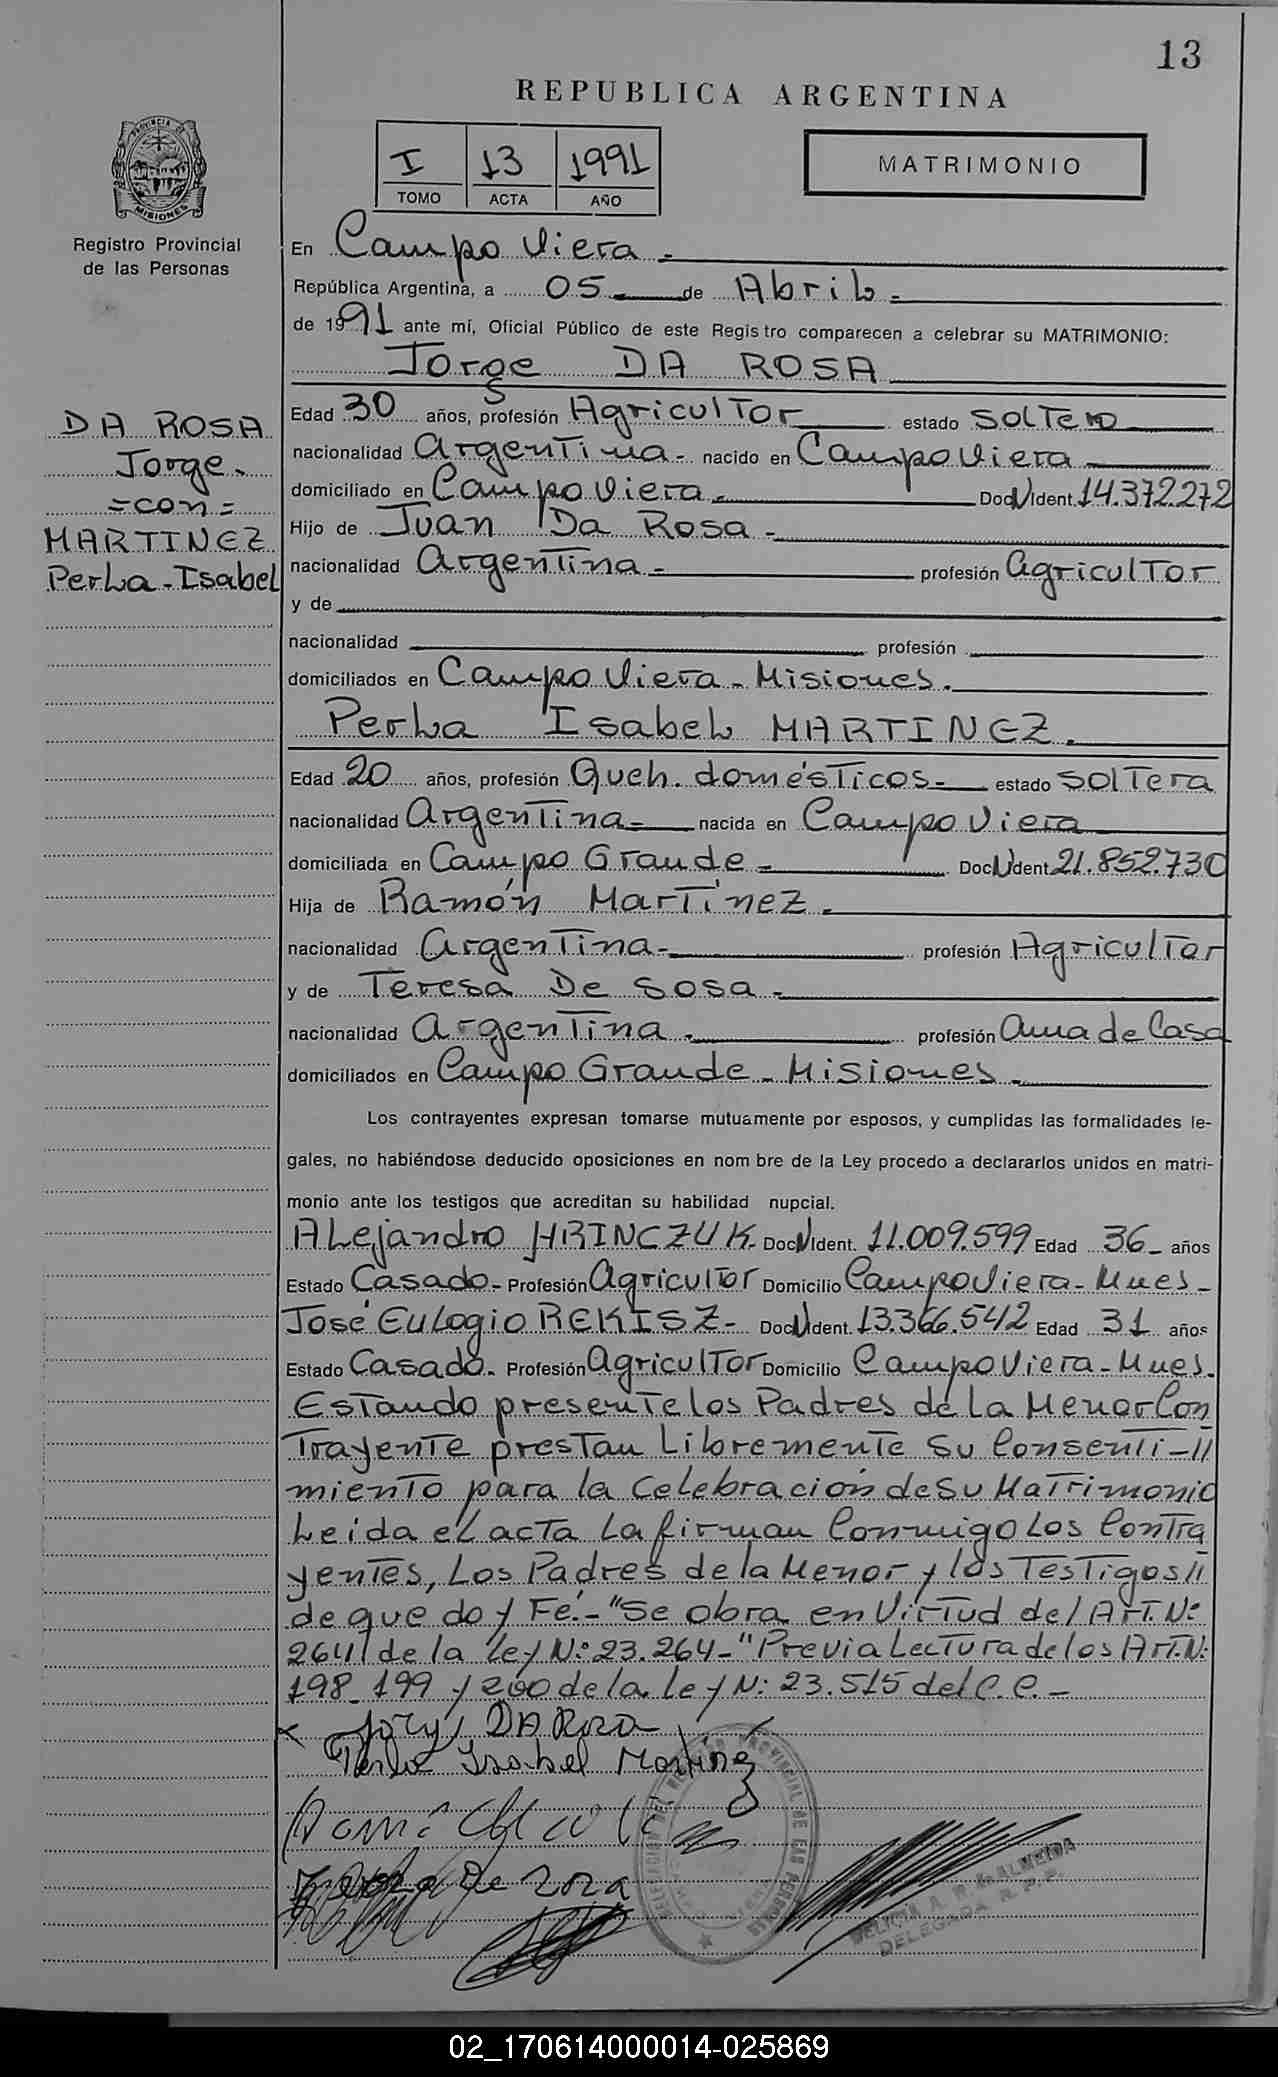 13
REPUBLICA ARGENTINA
PROVINCIA DE
MISIONES
Registro Provincial
de las Personas
I 13 1991
TOMO ACTA AÑO
MATRIMONIO
En Campo Viera.-
República Argentina, a 05 de Abril.-
de 1991 ante mí, Oficial Público de este Registro comparecen a celebrar su MATRIMONIO:
Jorge DA ROSA
DA ROSA
Jorge.
=con=
MARTINEZ
Perla-Isabel
Edad 30 años, profesión Agricultor estado Soltero
nacionalidad Argentina.- nacido en Campo Viera
domiciliado en Campo Viera.- Doc N Ident. 14.372.272
Hijo de Juan Da Rosa.-
nacionalidad Argentina.- profesión agricultor
y de
nacionalidad profesión
domiciliados en Campo Viera - Misiones.
Perla Isabel MARTINEZ.
Edad 20 años, profesión Queh. domésticos.- estado soltera
nacionalidad Argentina.- nacida en Campo Viera
domiciliada en Campo Grande.- Doc N Ident 21.852.730
Hija de Ramón Martínez.
nacionalidad Argentina.- profesión Agricultor
y de Teresa De Sosa.-
nacionalidad Argentina.- profesión Ama de Casa
domiciliados en Campo Grande - Misiones.-
Los contrayentes expresan tomarse mutuamente por esposos, y cumplidas las formalidades le-
gales, no habiéndose deducido oposiciones en nom bre de la Ley procedo a declararlos unidos en matri-
monio ante los testigos que acreditan su habilidad nupcial.
Alejandro HRINCZUK. Doc N Ident. 11.009.599 Edad 36- años
Estado Casado- Profesión Agricultor Domicilio Campo Viera - Mnes-
José Eulogio REKISZ- Doc N Ident. 13.366.542 Edad 31 años
Estado Casado. Profesión agricultor Domicilio Campo Viera - Mnes.
Estando presente los Padres de la Menor Con
trayente prestan Libremente su Consenti-//
miento para la Celebración de Su Matrimonio
Leida el acta la firman Conmigo Los Contra
yentes, Los Padres de la Menor y los Testigos//
de que doy Fé.- "Se obra en Virtud del Art. Nº
264 de la ley Nº 23.264-" Previa Lectura de los Art. Nº
198_199 y 200 de la Ley N: 23.515 del C.C.-
Jorge DA Rosa
Perla Isabel Martinez
DELEGADA R. P. P.
02_170614000014-025869